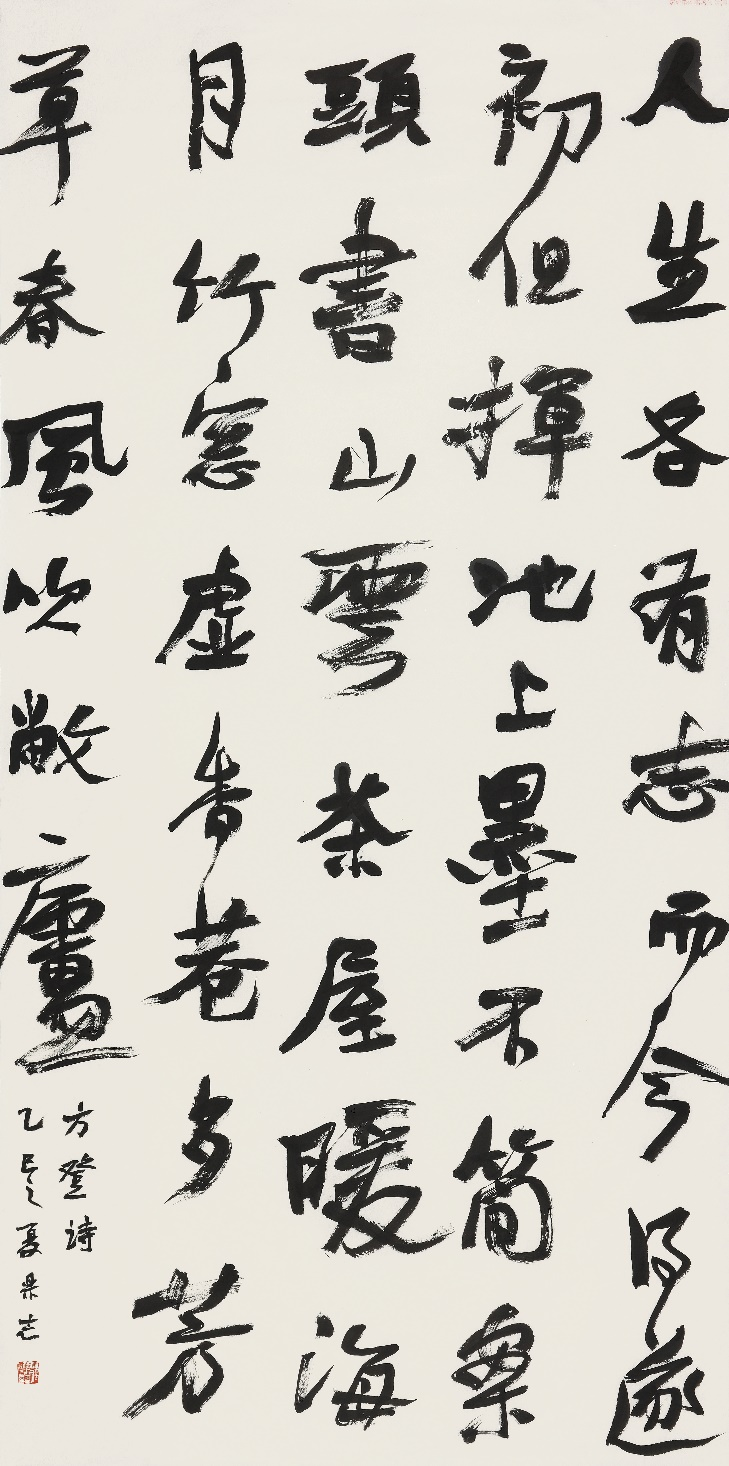 人生各有志而今得遂
初但挥池上墨不简案
頭書山雲茶屋暖海
月竹窓虚香巷多芳
草春風吹敝廬
方登诗
乙巳之夏果志